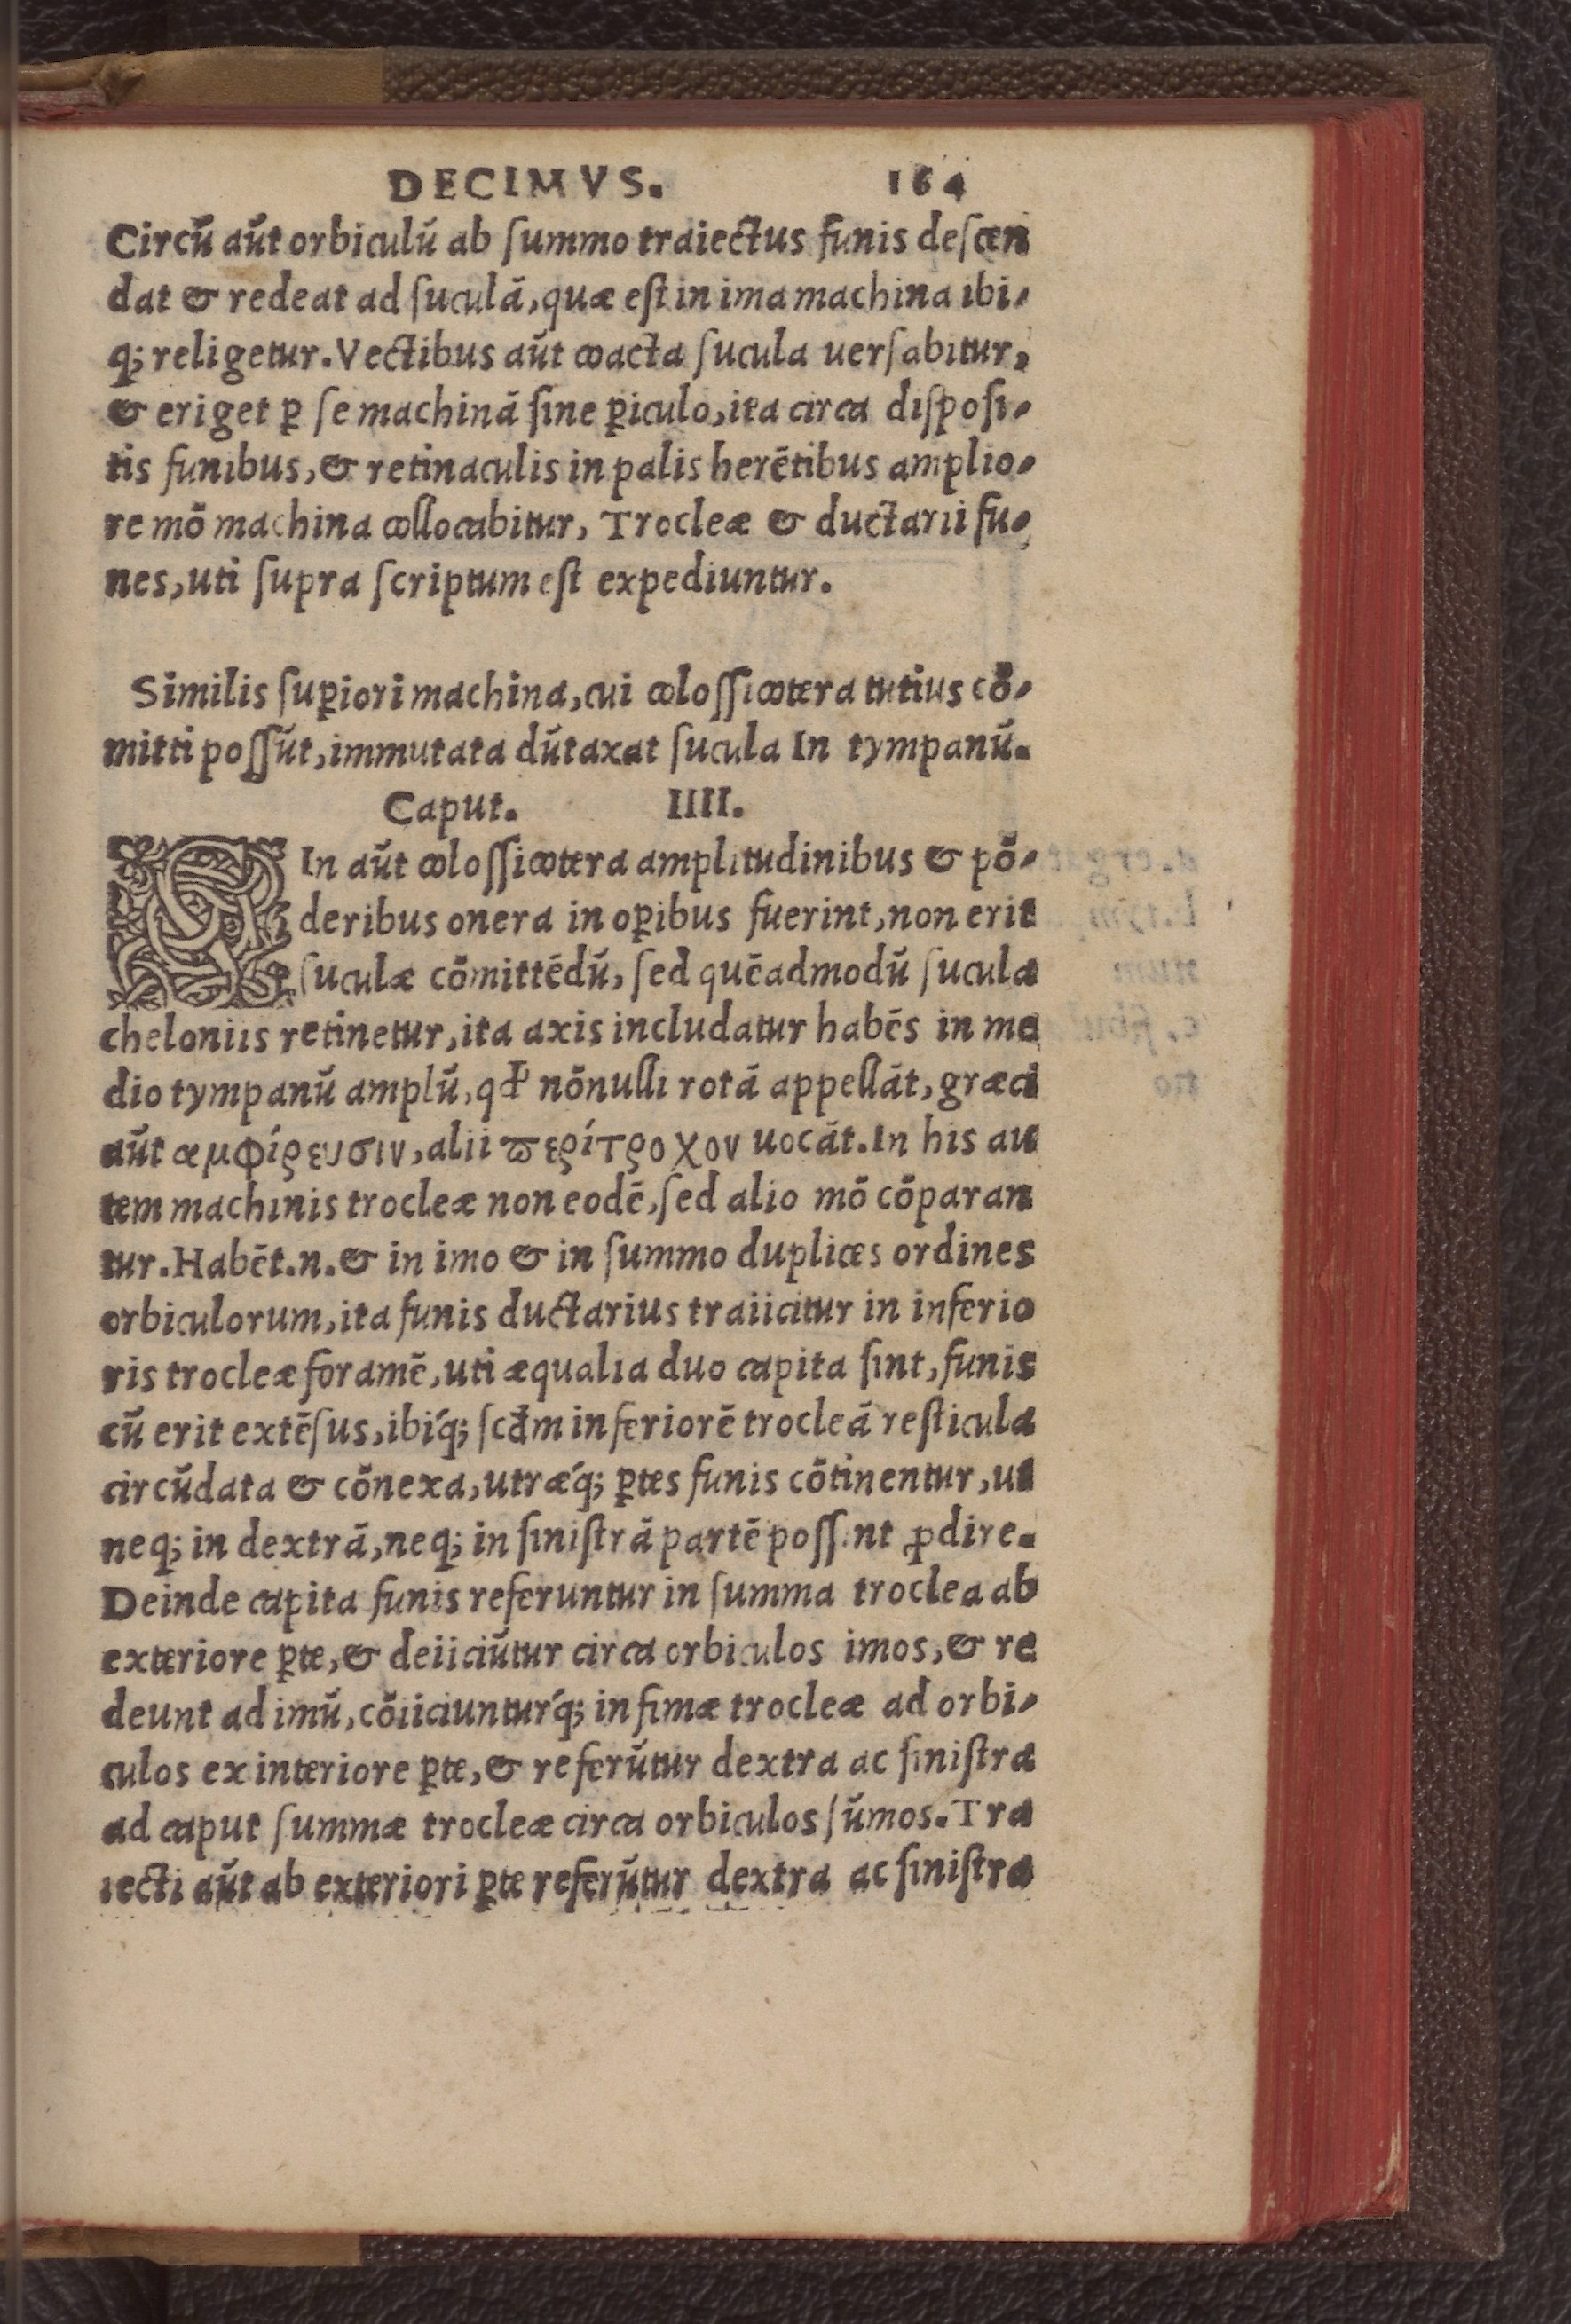 DECIMVS. 164
Circū aūt orbiculū ab ſummo traiectus funis deſcen
dat & redeat ad ſuculā, quæ eſt in ima machina ibi-
q; religetur. Vectibus aūt coacta ſucula uerſabitur,
& eriget ꝑ ſe machinā ſine ꝑiculo, ita circa diſpoſi-
tis funibus, & retinaculis in palis herētibus amplio-
re mō machina collocabitur, Trocleæ & ductarii fu-
nes, uti ſupra ſcriptum eſt expediuntur.
Similis ſuꝑiori machina, cui coloſſicotera tutius cō-
mitti poſſūt, immutata dūtaxat ſucula In tympanū.
Caput. IIII.
SIn aūt coloſſicotera amplitudinibus & pō-
deribus onera in oꝑibus fuerint, non erit
ſuculæ cōmittēdū, ſed quēadmodū ſucula
cheloniis retinetur, ita axis includatur habēs in me
dio tympanū amplū, qđ nōnulli rotā appellāt, græci
aūt αμφίρευσιν, alii ϖερίτροχον uocāt. In his au
tem machinis trocleæ non eodē, ſed alio mō cōparan
tur. Habēt.n. & in imo & in ſummo duplices ordines
orbiculorum, ita funis ductarius traiicitur in inferio
ris trocleæ foramē, uti æqualia duo capita ſint, funis
cū erit extēſus, ibiq́; ſcđm inferiorē trocleā reſticula
circūdata & cōnexa, utræq́; ꝑtes funis cōtinentur, ut
neq; in dextrā, neq; in ſiniſtrā partē poſſint ꝓdire.
Deinde capita funis referuntur in ſumma troclea ab
exteriore ꝑte, & deiiciūtur circa orbiculos imos, & re
deunt ad imū, cōiiciunturq́; infimæ trocleæ ad orbi-
culos ex interiore ꝑte, & referūtur dextra ac ſiniſtra
ad caput ſummæ trocleæ circa orbiculos ſūmos. Tra
iecti aūt ab exteriori ꝑte referūtur dextra ac ſiniſtra